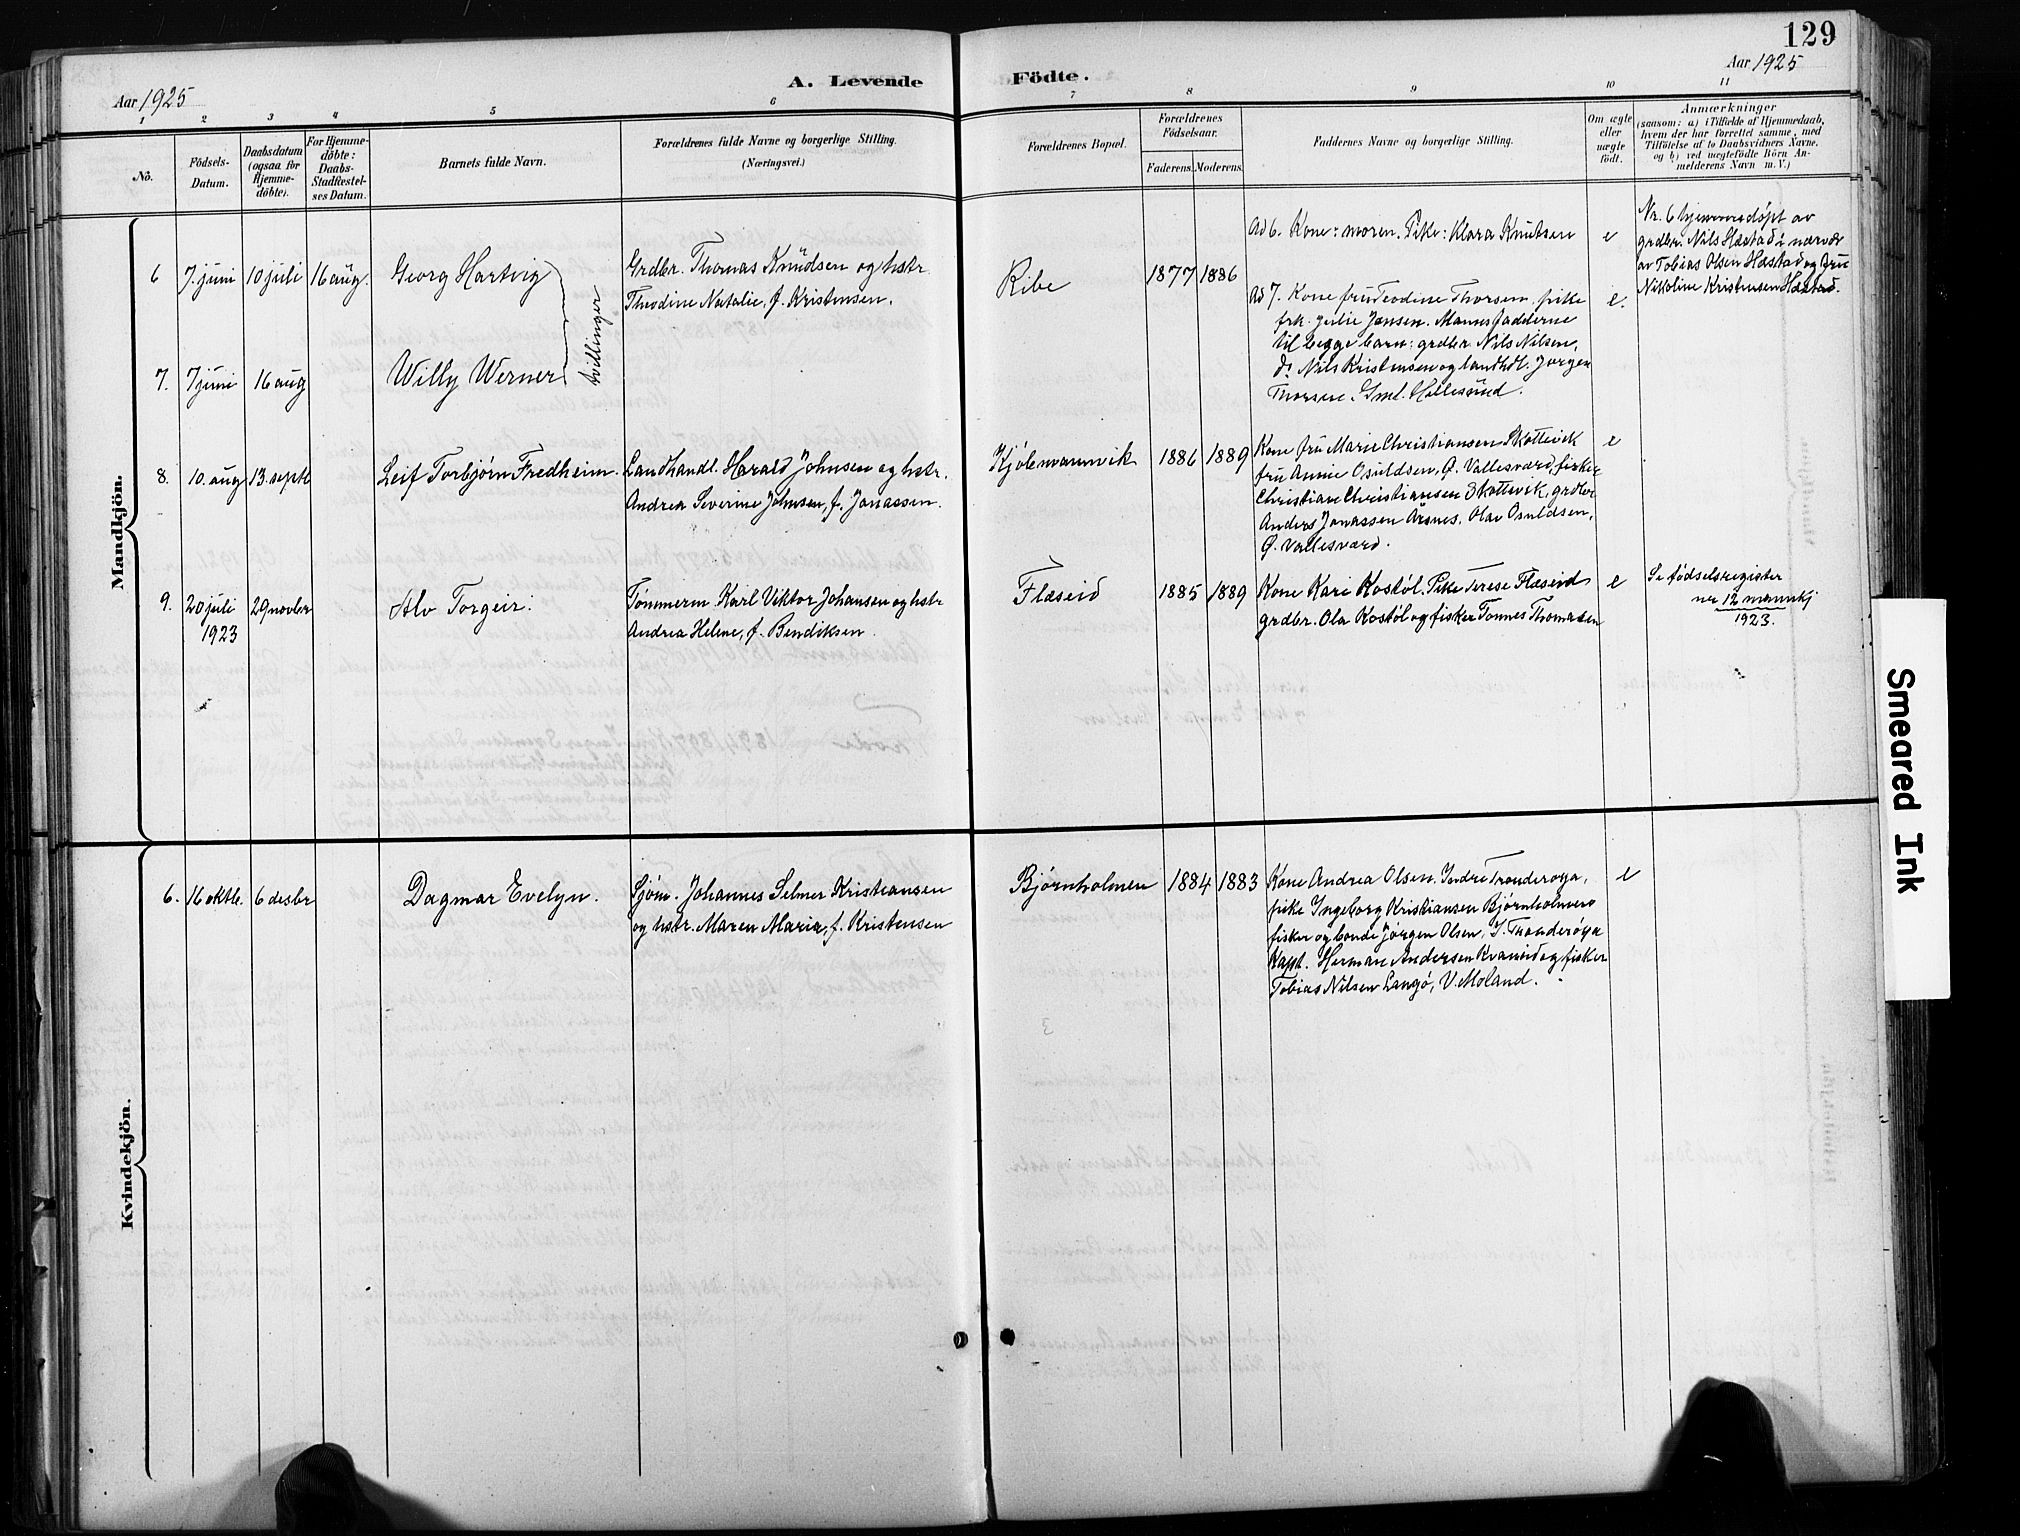 129
Aar 1925
A. Levende Födte.
Aar 1925
1 2 3 4 5 6 7 8 9 10 11
No.
Födsels-
Datum.
Daabsdatum
(ogsaa for
Hjemme-
döbte).
For Hjemme-
döbte:
Daabs-
Stadfæstel-
ses Datum.
Barnets fulde Navn.
Forældrenes fulde Navne og borgerlige Stilling.
(Næringsvei.)
Forældrenes Bopæl.
Forældrenes
Födselsaar.
Faderens. Moderens.
Faddernes Navne og borgerlige Stilling.
Om ægte
eller
uægte
födt.
Anmærkninger
(saasom: a) i Tilfælde af Hjemmedaab,
hvem der har forrettet samme, med
Tilföielse af to Daabsvidners Navne,
og b) ved uægtefödte Börn An-
melderens Navn m. V.)
Mandkjön.
6 7. juni 10 juli 16 aug. Georg Hartvig
tvillinger
Grdbr. Thomas Knudsen og hstr.
Theodine Natalie, f. Kristensen.
Ribe 1877 1886
Ad 6. Kone: moren. Pike: Klara Knutsen e
Nr. 6 hjemmedöpt av
grdbr. Nils Hæstad i nærvær
av Tobias Olsen Hæstad og fru
Nikoline Kristensen Hæstad.
7. 7 juni 16 aug Willy Werner
Ad 7. Kone fru Teodine Thorsen, pike e.
frk. Julie Jansen. Mannsfadderne
til begge barn: grdbr. Nils Nilsen,
do Nils Kristensen og landhdl. Jørgen
Thorsen. Gml. Hellesund.
8. 10. aug 13. septb Leif Torbjørn Fredheim.
Landhandl. Harald Johnsen og hstr.
Andrea Severine Johnsen, f. Jonassen.
Kjøbmannvik 1886 1889
Kone fru Marie Christiansen Skottevik e
fru Annie Osuldsen, Ø. Vallesværd, fisker
Christian Christiansen Skottevik, grdbr
Anders Jonassen Årsnes, Olav Osuldsen,
Ø. Vallesværd.
9. 20 juli 29 novbr Alv Torgeir.
1923
Tömmerm. Karl Viktor Johansen og hstr
Andrea Helene, f. Bendiksen.
Flæseid 1885 1889
Kone Kari Kostøl. Pike Terese Flæseid e
grdbr. Ola Kostøl og fisker Tønnes Thomassen
Se fødselsregister
nr 12 mannkj
1923.
Kvindekjön.
6. 16 oktb. 6 desbr Dagmar Evelyn.
Sjøm. Johannes Selmer Kristiansen
og hstr. Maren Marie, f. Kristensen
Bjørnholmen 1884 1883
Kone Andrea Olsen, Indre Tronderøya, e
pike Ingeborg Kristiansen Bjørnholmen
fisker og bonde Jørgen Olsen, I. Tronderøya
Kapt. Herman Andersen Kvarsid og fisker
Tobias Nilsen Langø, V. Moland.
Smeared Ink